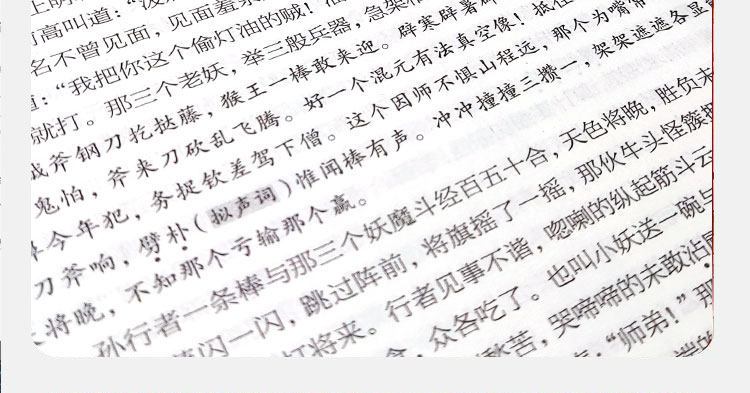 可高叫道：“泼
名不曾见面，见面羞
道：“我把你这个偷灯油的贼！
就打。那三个老妖，举三股兵器，急架
战斧钢刀扢挞藤，猴王一棒敢来迎。辟寒辟暑
鬼怕，斧来刀砍乱飞腾。好一个混元有法真空像！抵住
今年犯，务捉钦差驾下僧。这个因师不惧山程远，那个为嘴
刀斧响，劈朴（拟声词）惟闻棒有声。冲冲撞撞三攒一，架架遮遮各显
将晚，不知那个亏输那个赢。
孙行者一条棒与那三个妖魔斗经百五十合，天色将晚，胜负未
闪一闪，跳过阵前，将旗摇了一摇，那伙牛头怪簇拥
打将来。行者见事不谐，唿喇的纵起筋斗云
众各吃了。也叫小妖送一碗与
愁苦，哭啼啼的未敢沾唇
“师弟！”那